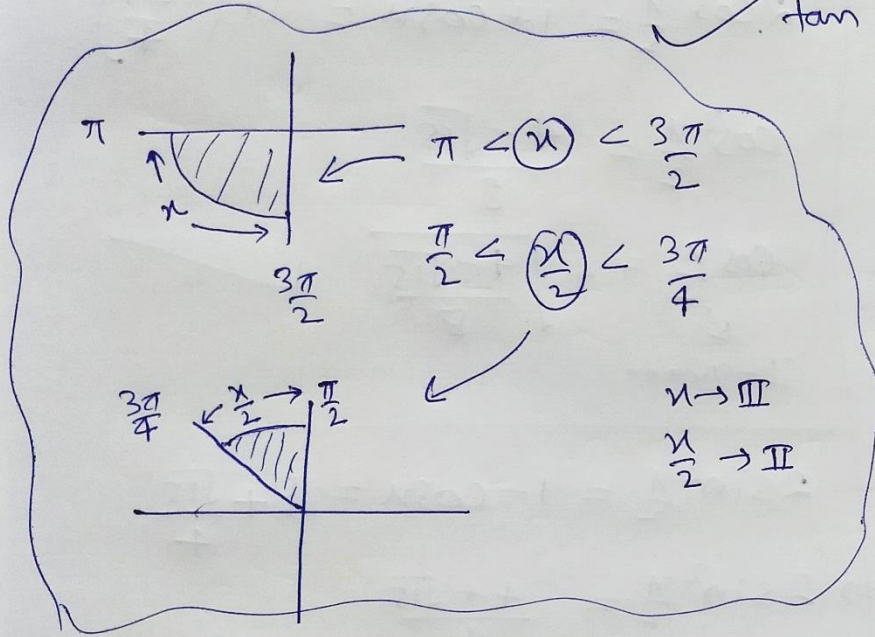 tan
π π < x < 3π/2
x
3π/2
π/2 < x/2 < 3π/4
3π/4 x/2 π/2
x → III
x/2 → II